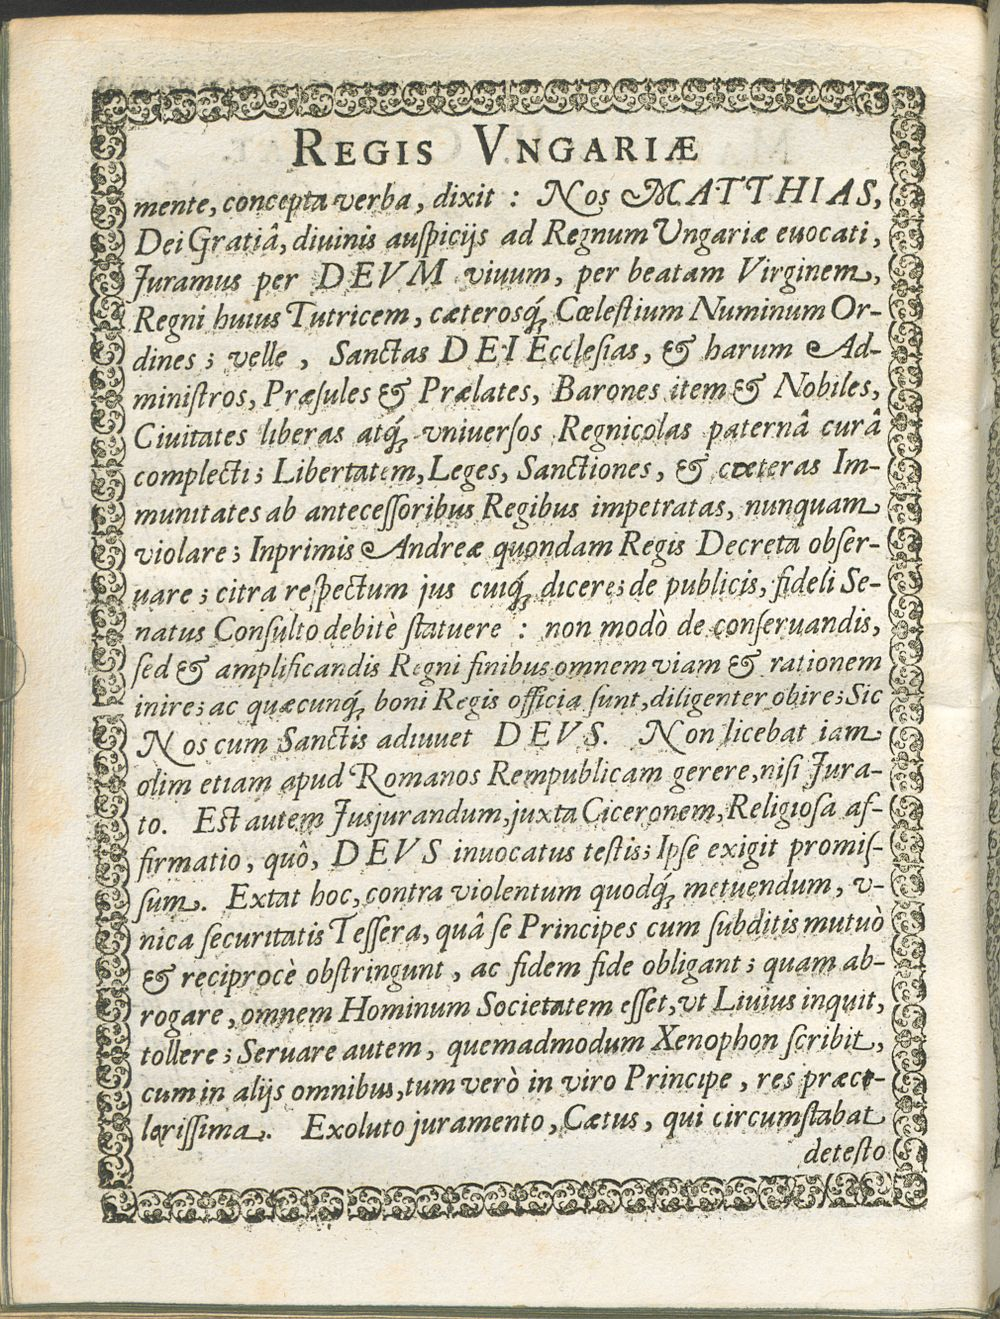 REGIS VNGARIÆ
mente, concepta verba, dixit : Nos MATTHIAS,
Dei Gratiâ, diuinis auſpicijs ad Regnum Ungariæ euocati,
Juramus per DEVM viuum, per beatam Virginem,
Regni huius Tutricem, cæterosq́; Cœleſtium Numinum Or-
dines ; velle , Sanctas DEI Eccleſias, & harum Ad-
miniſtros, Præſules & Prælates, Barones item & Nobiles,
Ciuitates liberas atq́; vniuerſos Regnicolas paternâ curâ
complecti ; Libertatem, Leges, Sanctiones, & cæteras Im-
munitates ab anteceſſoribus Regibus impetratas, nunquam
violare ; Inprimis Andreæ quondam Regis Decreta obſer-
uare ; citra reſpectum jus cuiq́; dicere ; de publicis, fideli Se-
natus Conſulto debitè ſtatuere : non modò de conſeruandis,
ſed & amplificandis Regni finibus omnem viam & rationem
inire ; ac quæcunq́; boni Regis officia ſunt, diligenter obire ; Sic
Nos cum Sanctis adiuuet DEVS. Non licebat iam
olim etiam apud Romanos Rempublicam gerere, niſi Jura-
to. Eſt autem Jusjurandum, juxta Ciceronem, Religioſa aſ-
firmatio, quô, DEVS inuocatus teſtis ; Ipſe exigit promiſ-
ſum. Extat hoc, contra violentum quodq́; metuendum, v-
nica ſecuritatis Teſſera, quâ ſe Principes cum ſubditis mutuò
& reciprocè obſtringunt , ac fidem fide obligant ; quam ab-
rogare , omnem Hominum Societatem eſſet, vt Liuius inquit,
tollere ; Seruare autem , quemadmodum Xenophon ſcribit,
cum in alijs omnibus, tum verò in viro Principe , res præc-
lariſſima. Exoluto juramento, Cætus , qui circumſtabat
deteſto